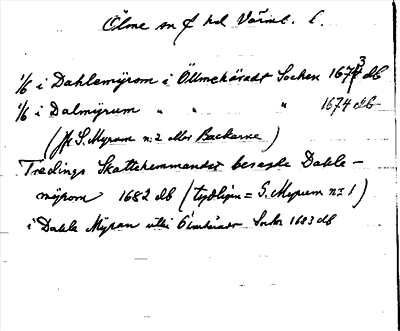 Ölme sn o hd Värml. l.
1/6 i Dahlemÿrom i Öllmehäradt Socken 1673 db
1/6 i Dalmÿrum " " " 1674 db
(jfr S. Myrom n:2 eller Backarne)
Tredings Skattehemmandet besagde Dahle-
mÿrom 1682 db (tydligen = S. Myrum n:1)
i Dahle Mÿran uthi Ölmehärads Sockn 1683 db